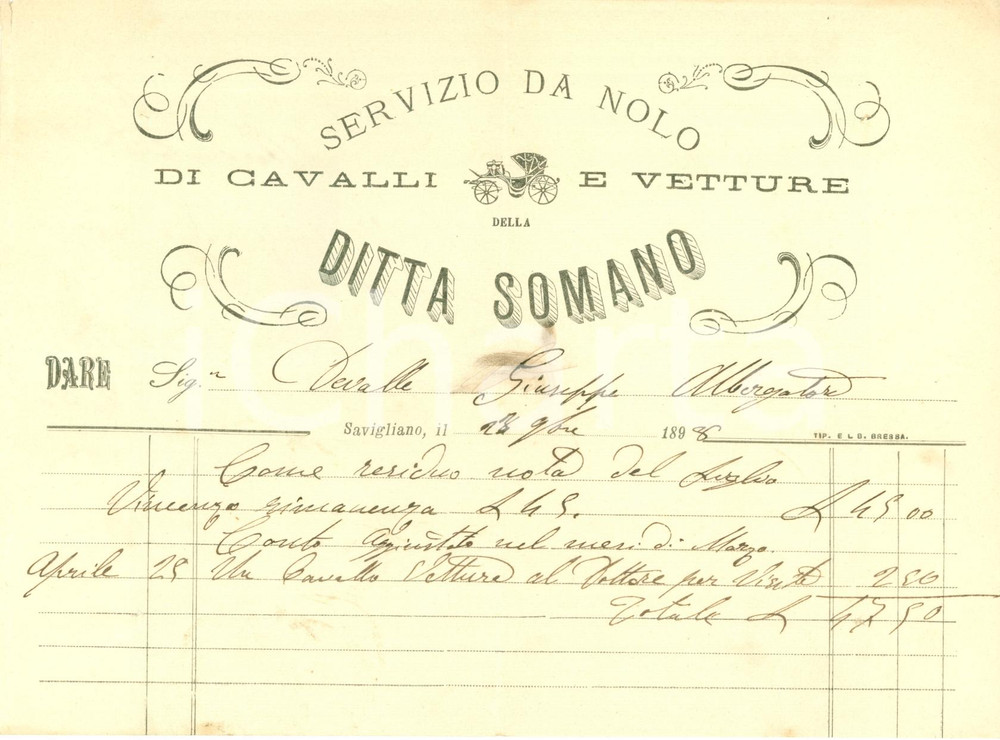 SERVIZIO DA NOLO
DI CAVALLI E VETTURE
DELLA
DITTA SOMANO
DARE Sig.r Devalle Giuseppe Albergatore
Savigliano, il 9bre 1898
TIP. E L D. BRESSA.
Come residuo nota del figlio
Vincenzo rimanenza L 45. L 45 00
Conto aggiustato nel mesi di Marzo.
Aprile 25 Un Cavallo Vettura al Dottore per Visita 2 50
Totale L 47 50
iCharta